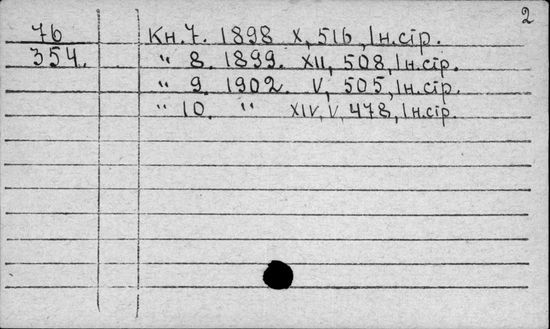 2
76 Кн. 7. 1898 X, 516, Ін. сір.
354. " 8. 1899. XII, 508, Ін. сір.
" 9. 1902. V, 505, Ін. сір.
" 10. " XIV, V, 478, Ін. сір.